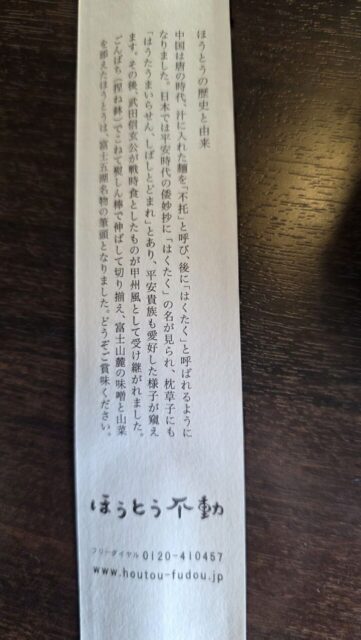 ほうとうの歴史と由来
中国は唐の時代、汁に入れた麺を「不托」と呼び、後に「はくたく」と呼ばれるように
なりました。日本では平安時代の倭妙抄に「はくたく」の名が見られ、枕草子にも
「はうたうまいらせん、しばしとどまれ」とあり、平安貴族も愛好した様子が窺え
ます。その後、武田信玄公が戦時食としたものが甲州風として受け継がれました。
ごんばち（捏ね鉢）でこねて麺しん棒で伸ばして切り揃え、富士山麓の味噌と山菜
を添えたほうとうは、富士五湖名物の筆頭となりました。どうぞご賞味ください。
ほうとう不動
フリーダイヤル 0120-410457
www.houtou-fudou.jp